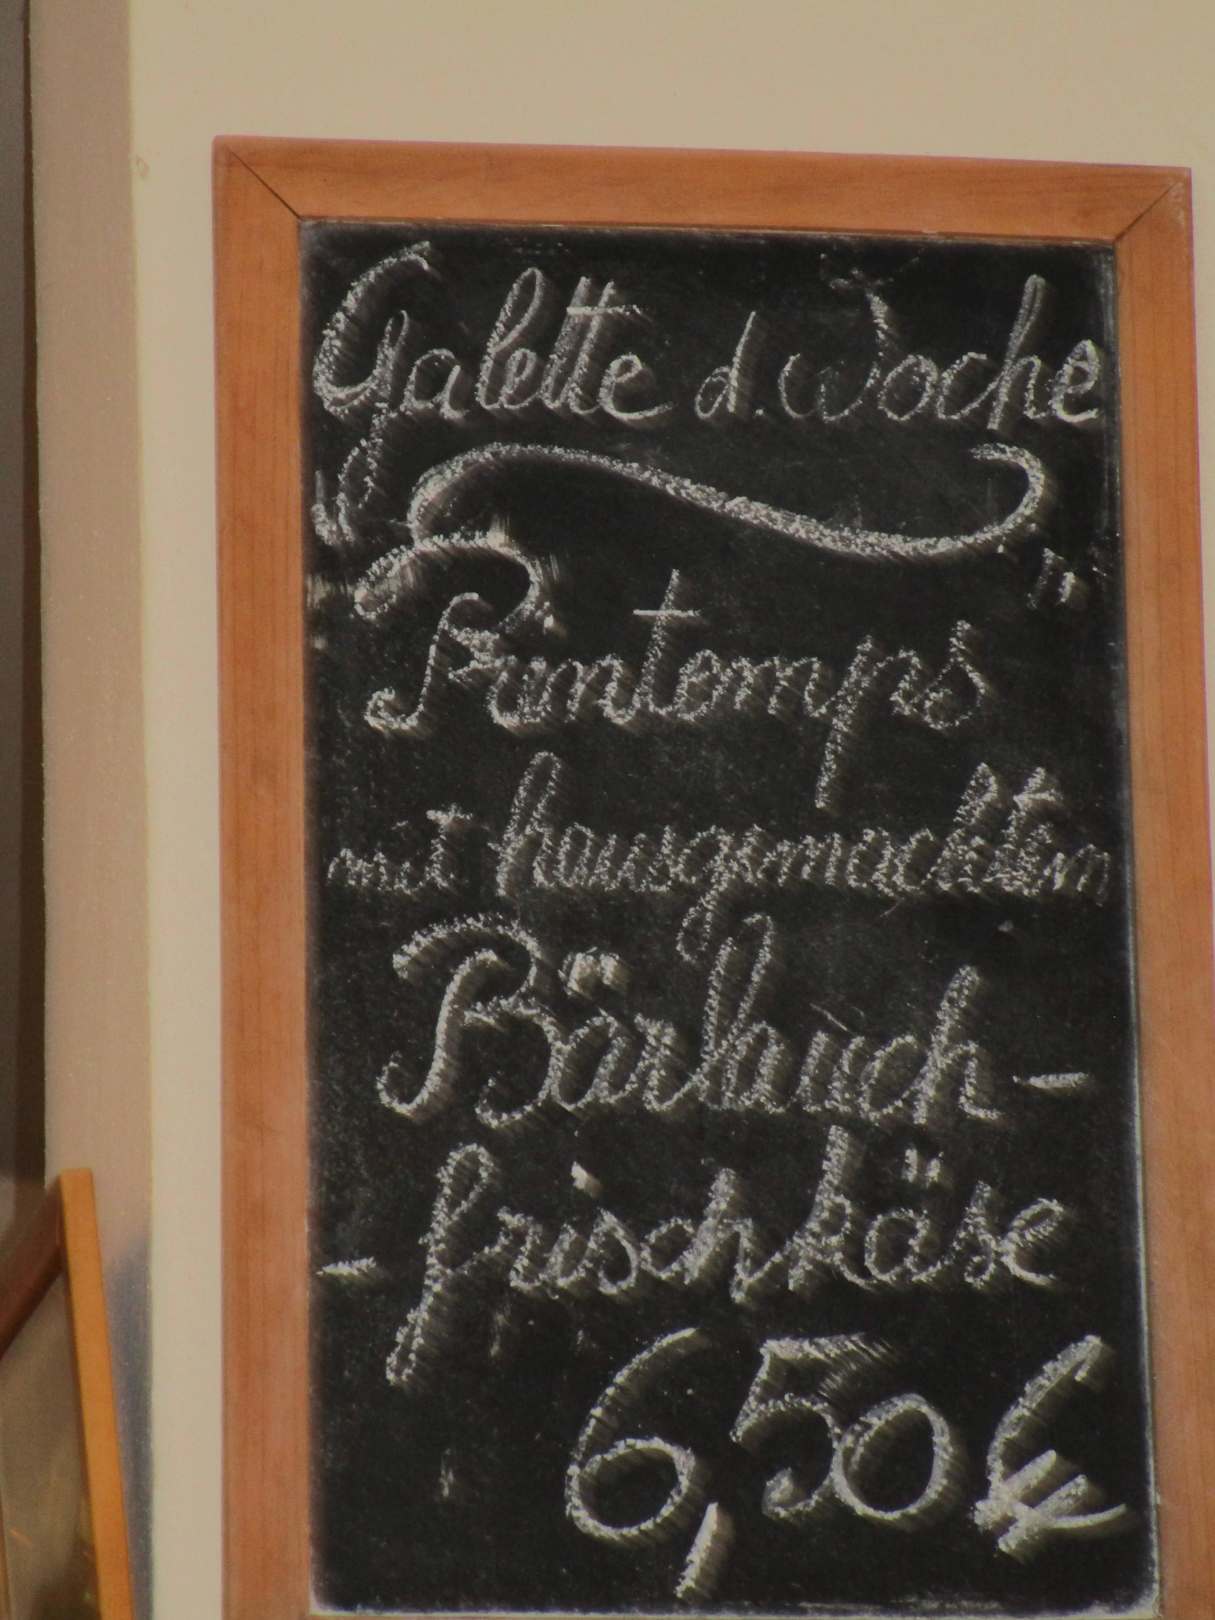 Galette d. Woche
Printemps"
mit hausgemachtem
Bärlauch-
-frischkäse
6,50 €